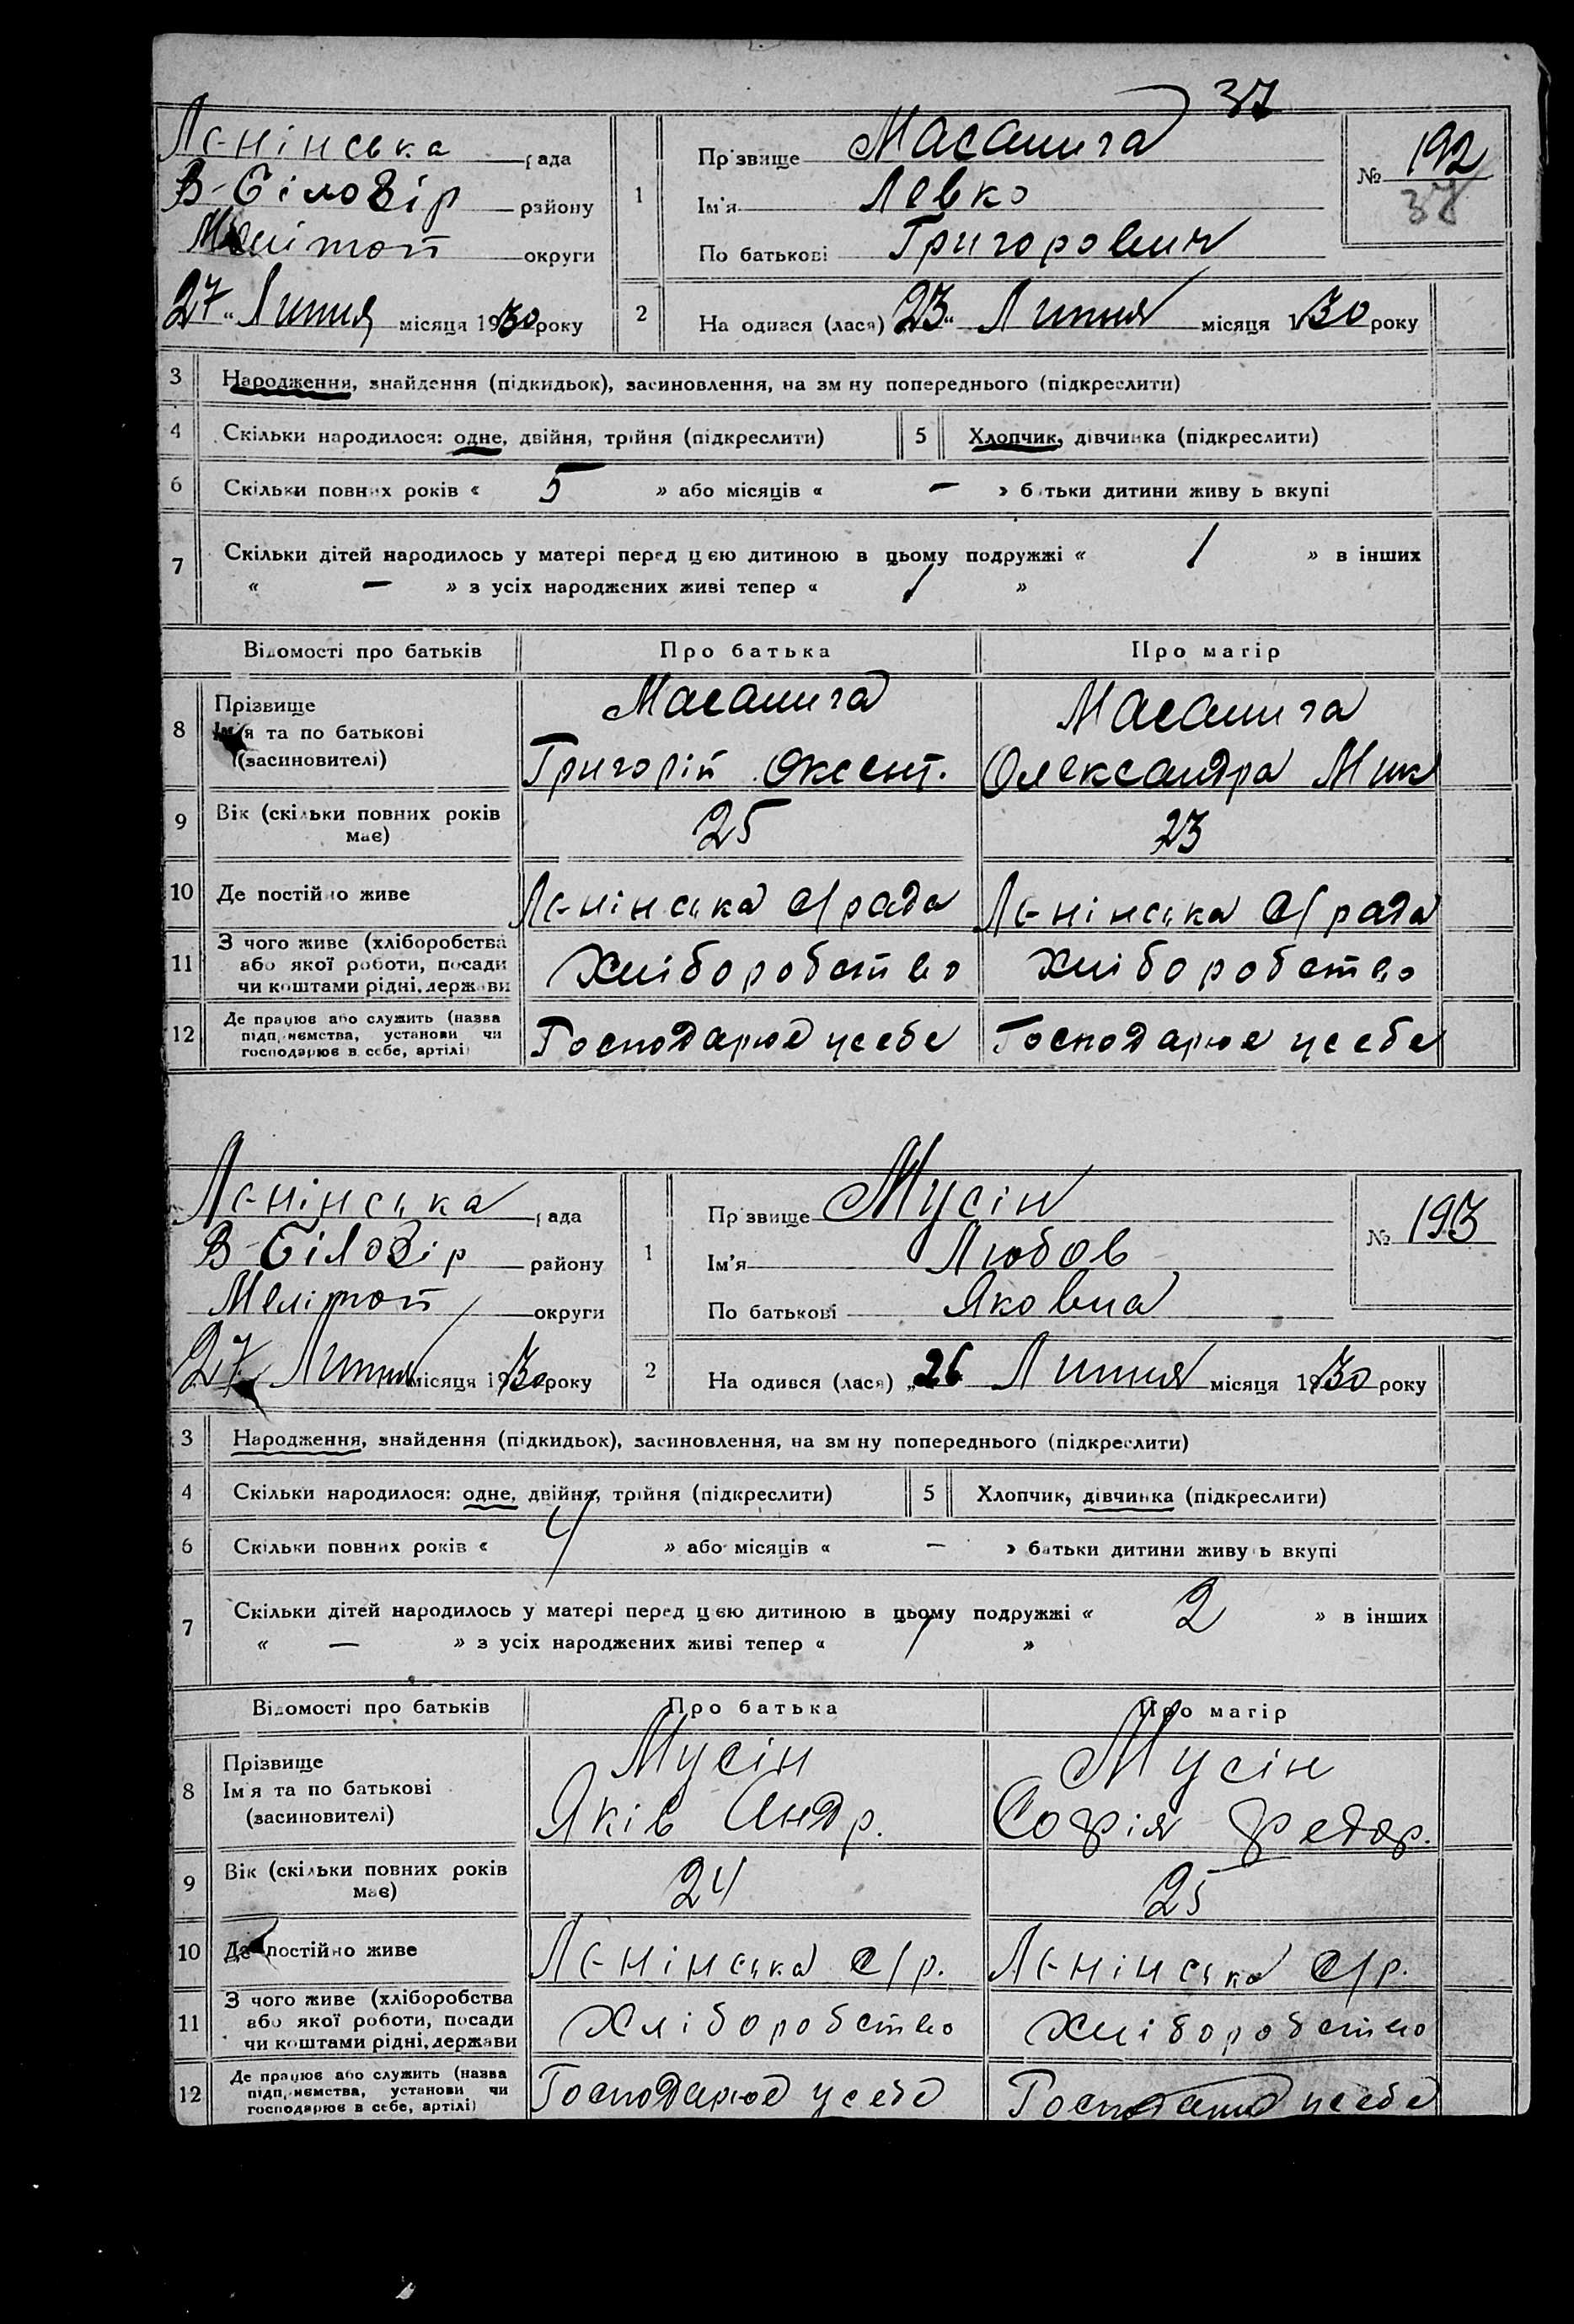 37
Лєнінська рада
В-Білозір району
Меліт​оп округи
27 Липня місяця 1930 року
1
Прізвище Масалига
Ім'я Левко
По батькові Григорович
№ 192
37
2
На одився (лася) 23 Липня місяця 130 року
3 Народження, знайдення (підкидьок), засиновлення, на зм ну попереднього (підкреслити)
4 Скільки народилося: одне, двійня, трійня (підкреслити) 5 Хлопчик, дівчинка (підкреслити)
6 Скільки повних років « 5 » або місяців « — » батьки дитини живу ь вкупі
7 Скільки дітей народилось у матері перед цією дитиною в цьому подружжі « 1 » в інших
« — » з усіх народжених живі тепер « 1 »
Відомості про батьків Про батька Про матір
8 Прізвище Ім'я та по батькові (засиновителі)
Масалига Масалига
Григорій Оксент. Олександра Мик
9 Вік (скільки повних років має) 25 23
10 Де постійно живе Лєнінська с/рада Лєнінська с/рада
11 З чого живе (хліборобства або якої роботи, посади чи коштами рідні, держави Хліборобство Хліборобство
12 Де працює або служить (назва підприємства, установи чи господарює в себе, артілі) Господарює у себе Господарює у себе
Лєнінська рада
В-Білозір району
Меліт​оп округи
27 Липня місяця 1930 року
1
Прізвище Мусін
Ім'я Любов
По батькові Яковна
№ 193
2
На одився (лася) „26 Липня місяця 1930 року
3 Народження, знайдення (підкидьок), засиновлення, на зм ну попереднього (підкреслити)
4 Скільки народилося: одне, двійня, трійня (підкреслити) 5 Хлопчик, дівчинка (підкреслити)
6 Скільки повних років « 4 » або місяців « — » батьки дитини живу ь вкупі
7 Скільки дітей народилось у матері перед цією дитиною в цьому подружжі « 2 » в інших
« — » з усіх народжених живі тепер « 1 »
Відомості про батьків Про батька Про матір
8 Прізвище Ім'я та по батькові (засиновителі)
Мусін Мусін
Яків Андр. Софія Федор.
9 Вік (скільки повних років має) 24 25
10 Де постійно живе Лєнінська с/р. Лєнінська с/р.
11 З чого живе (хліборобства або якої роботи, посади чи коштами рідні, держави Хліборобство Хліборобство
12 Де працює або служить (назва підприємства, установи чи господарює в себе, артілі) Господарює у себе Господарює у себе